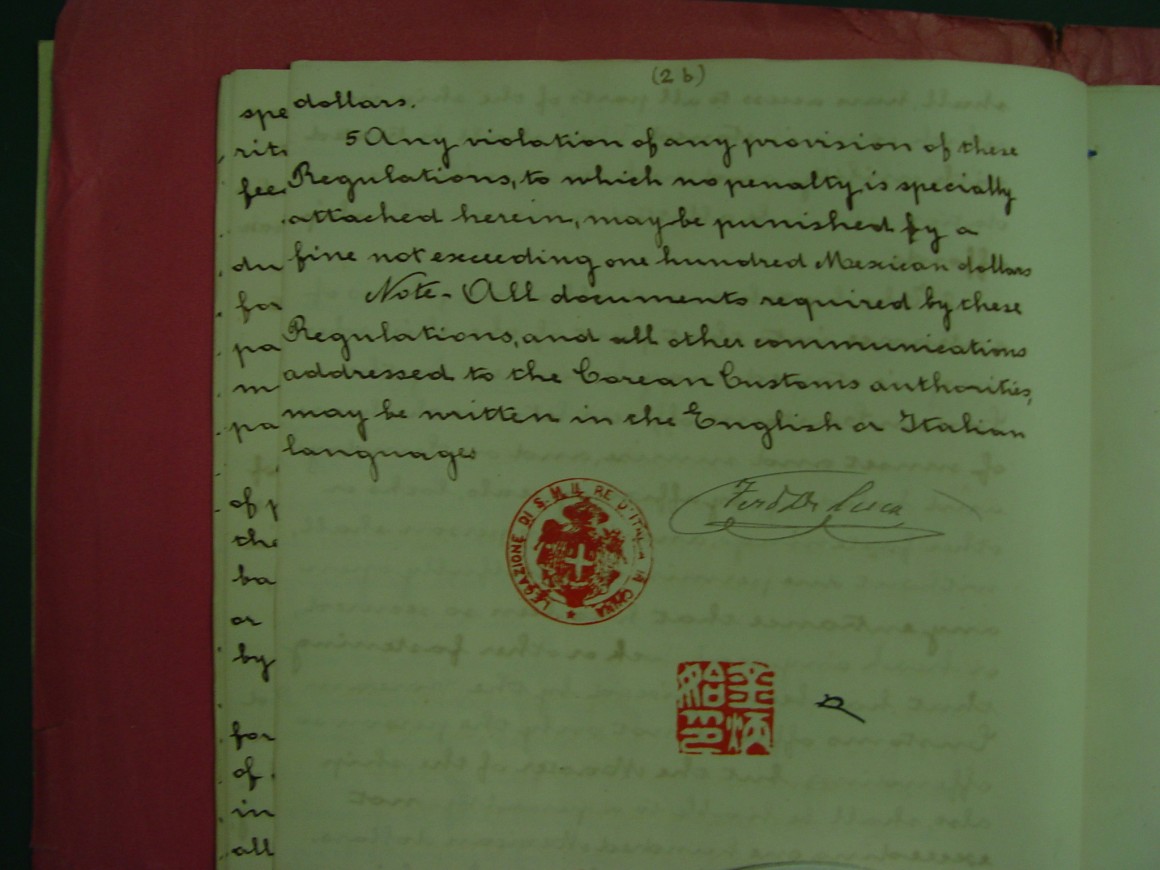 (2 b)
dollars.
5 Any violation of any provision of these
Regulations, to which no penalty is specially
attached herein, may be punished by a
fine not exceeding one hundred Mexican dollars
Note - All documents required by these
Regulations, and all other communications
addressed to the Corean Customs authorities,
may be written in the English or Italian
languages
LEGAZIONE DI S. M. IL RE D'ITALIA IN CHINA
Ferd De Luca
spe
rit
fee
du
for
pa
m
pa
of p
the
ba
or
by
for
of
in
all